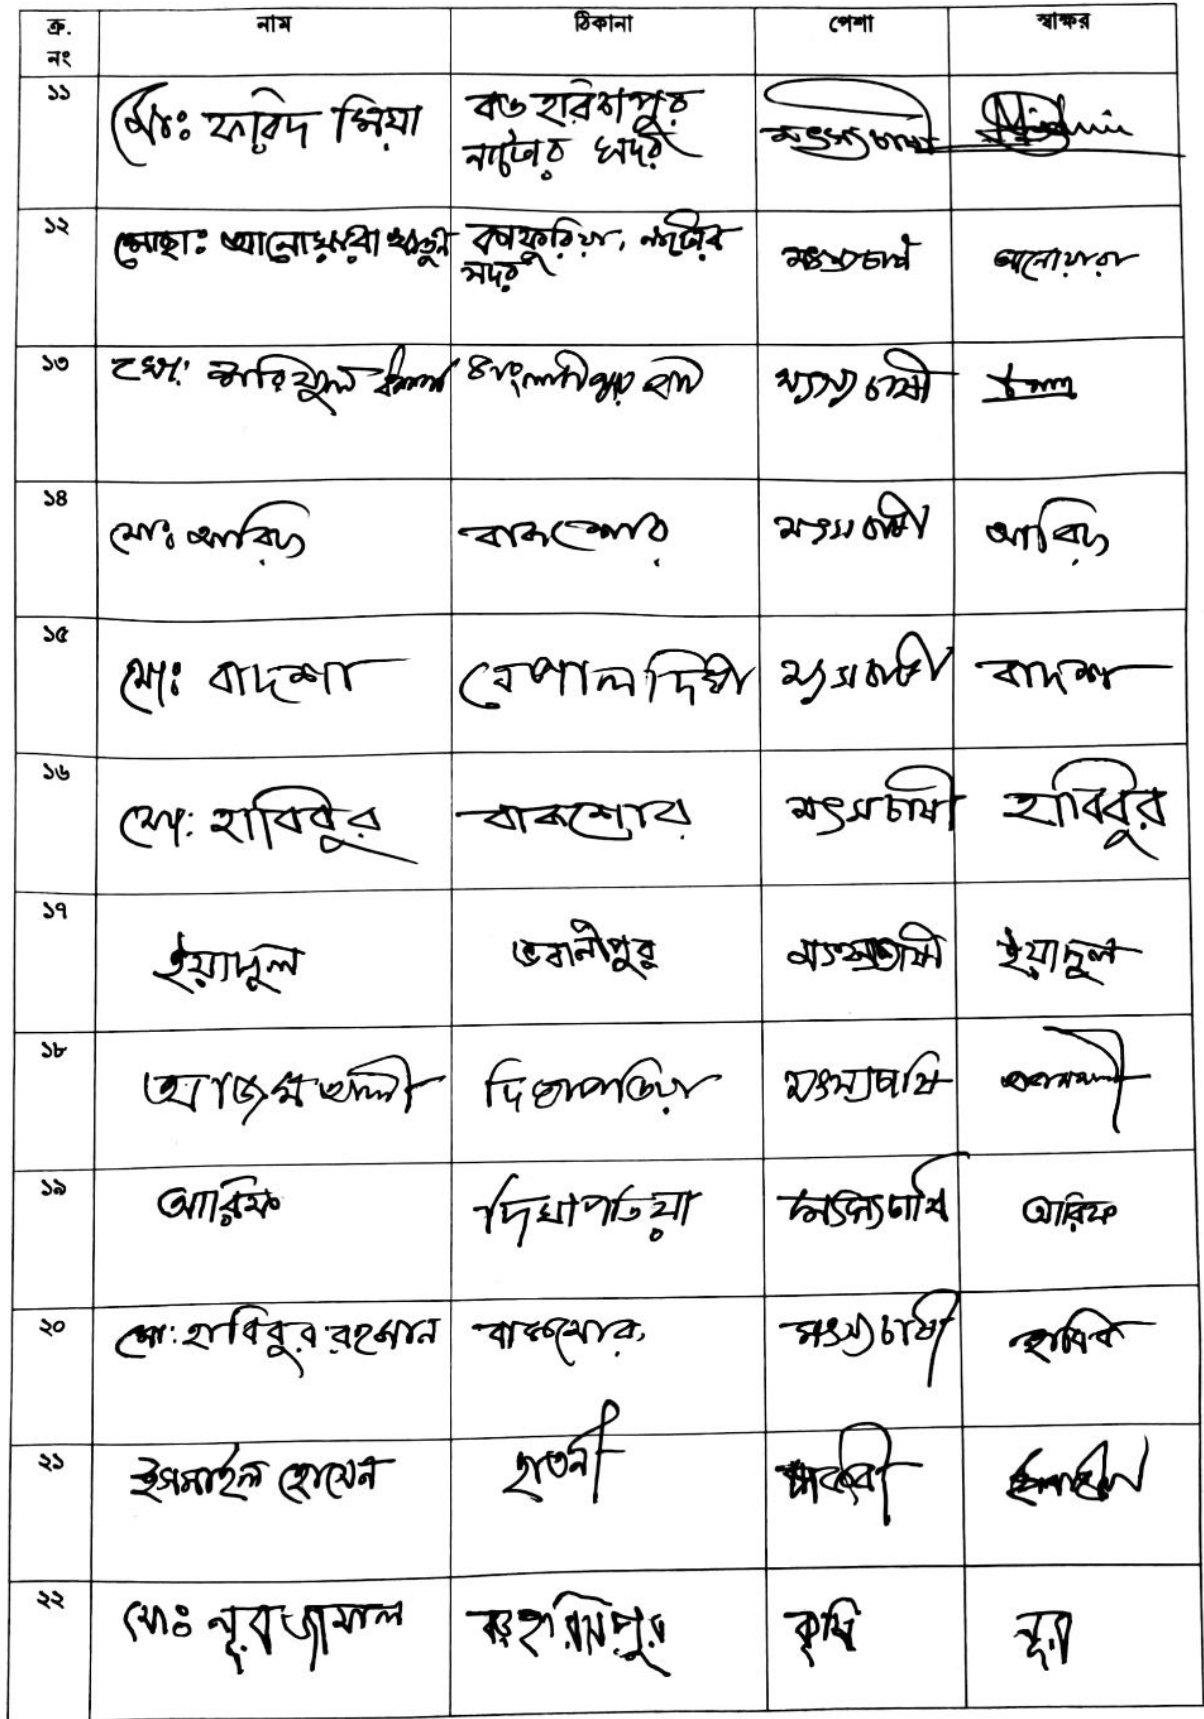 ক্র. নং নাম ঠিকানা পেশা স্বাক্ষর
১১ মোঃ ফরিদ মিয়া বড় হরিশপুর নাটোর সদর মৎস্যচাষী
১২ মোছাঃ আনোয়ারা খাতুন কাফুরিয়া, নাটোর সদর মৎস্যচাষী আনোয়ারা
১৩ মোঃ মৎস্য চাষী
১৪ মোঃ আরিফ বাকশোর মৎস চাষী আরিফ
১৫ মোঃ বাদশা নেপালদিঘী মৎস চাষী বাদশা
১৬ মোঃ হাবিবুর বাকশোর মৎস চাষী হাবিবুর
১৭ ইয়াদুল ভবানীপুর মৎস্যচাষী ইয়াদুল
১৮ আজম আলী দিঘাপতিয়া মৎস্যচাষি
১৯ আরিফ দিঘাপতিয়া মৎস্যচাষি আরিফ
২০ মোঃ হাবিবুর রহমান বাকশোর, মৎস্য চাষী হাবিব
২১ ইসমাইল হোসেন হাতনী
২২ মোঃ নূরজামাল বড়হরিশপুর কৃষি নূর